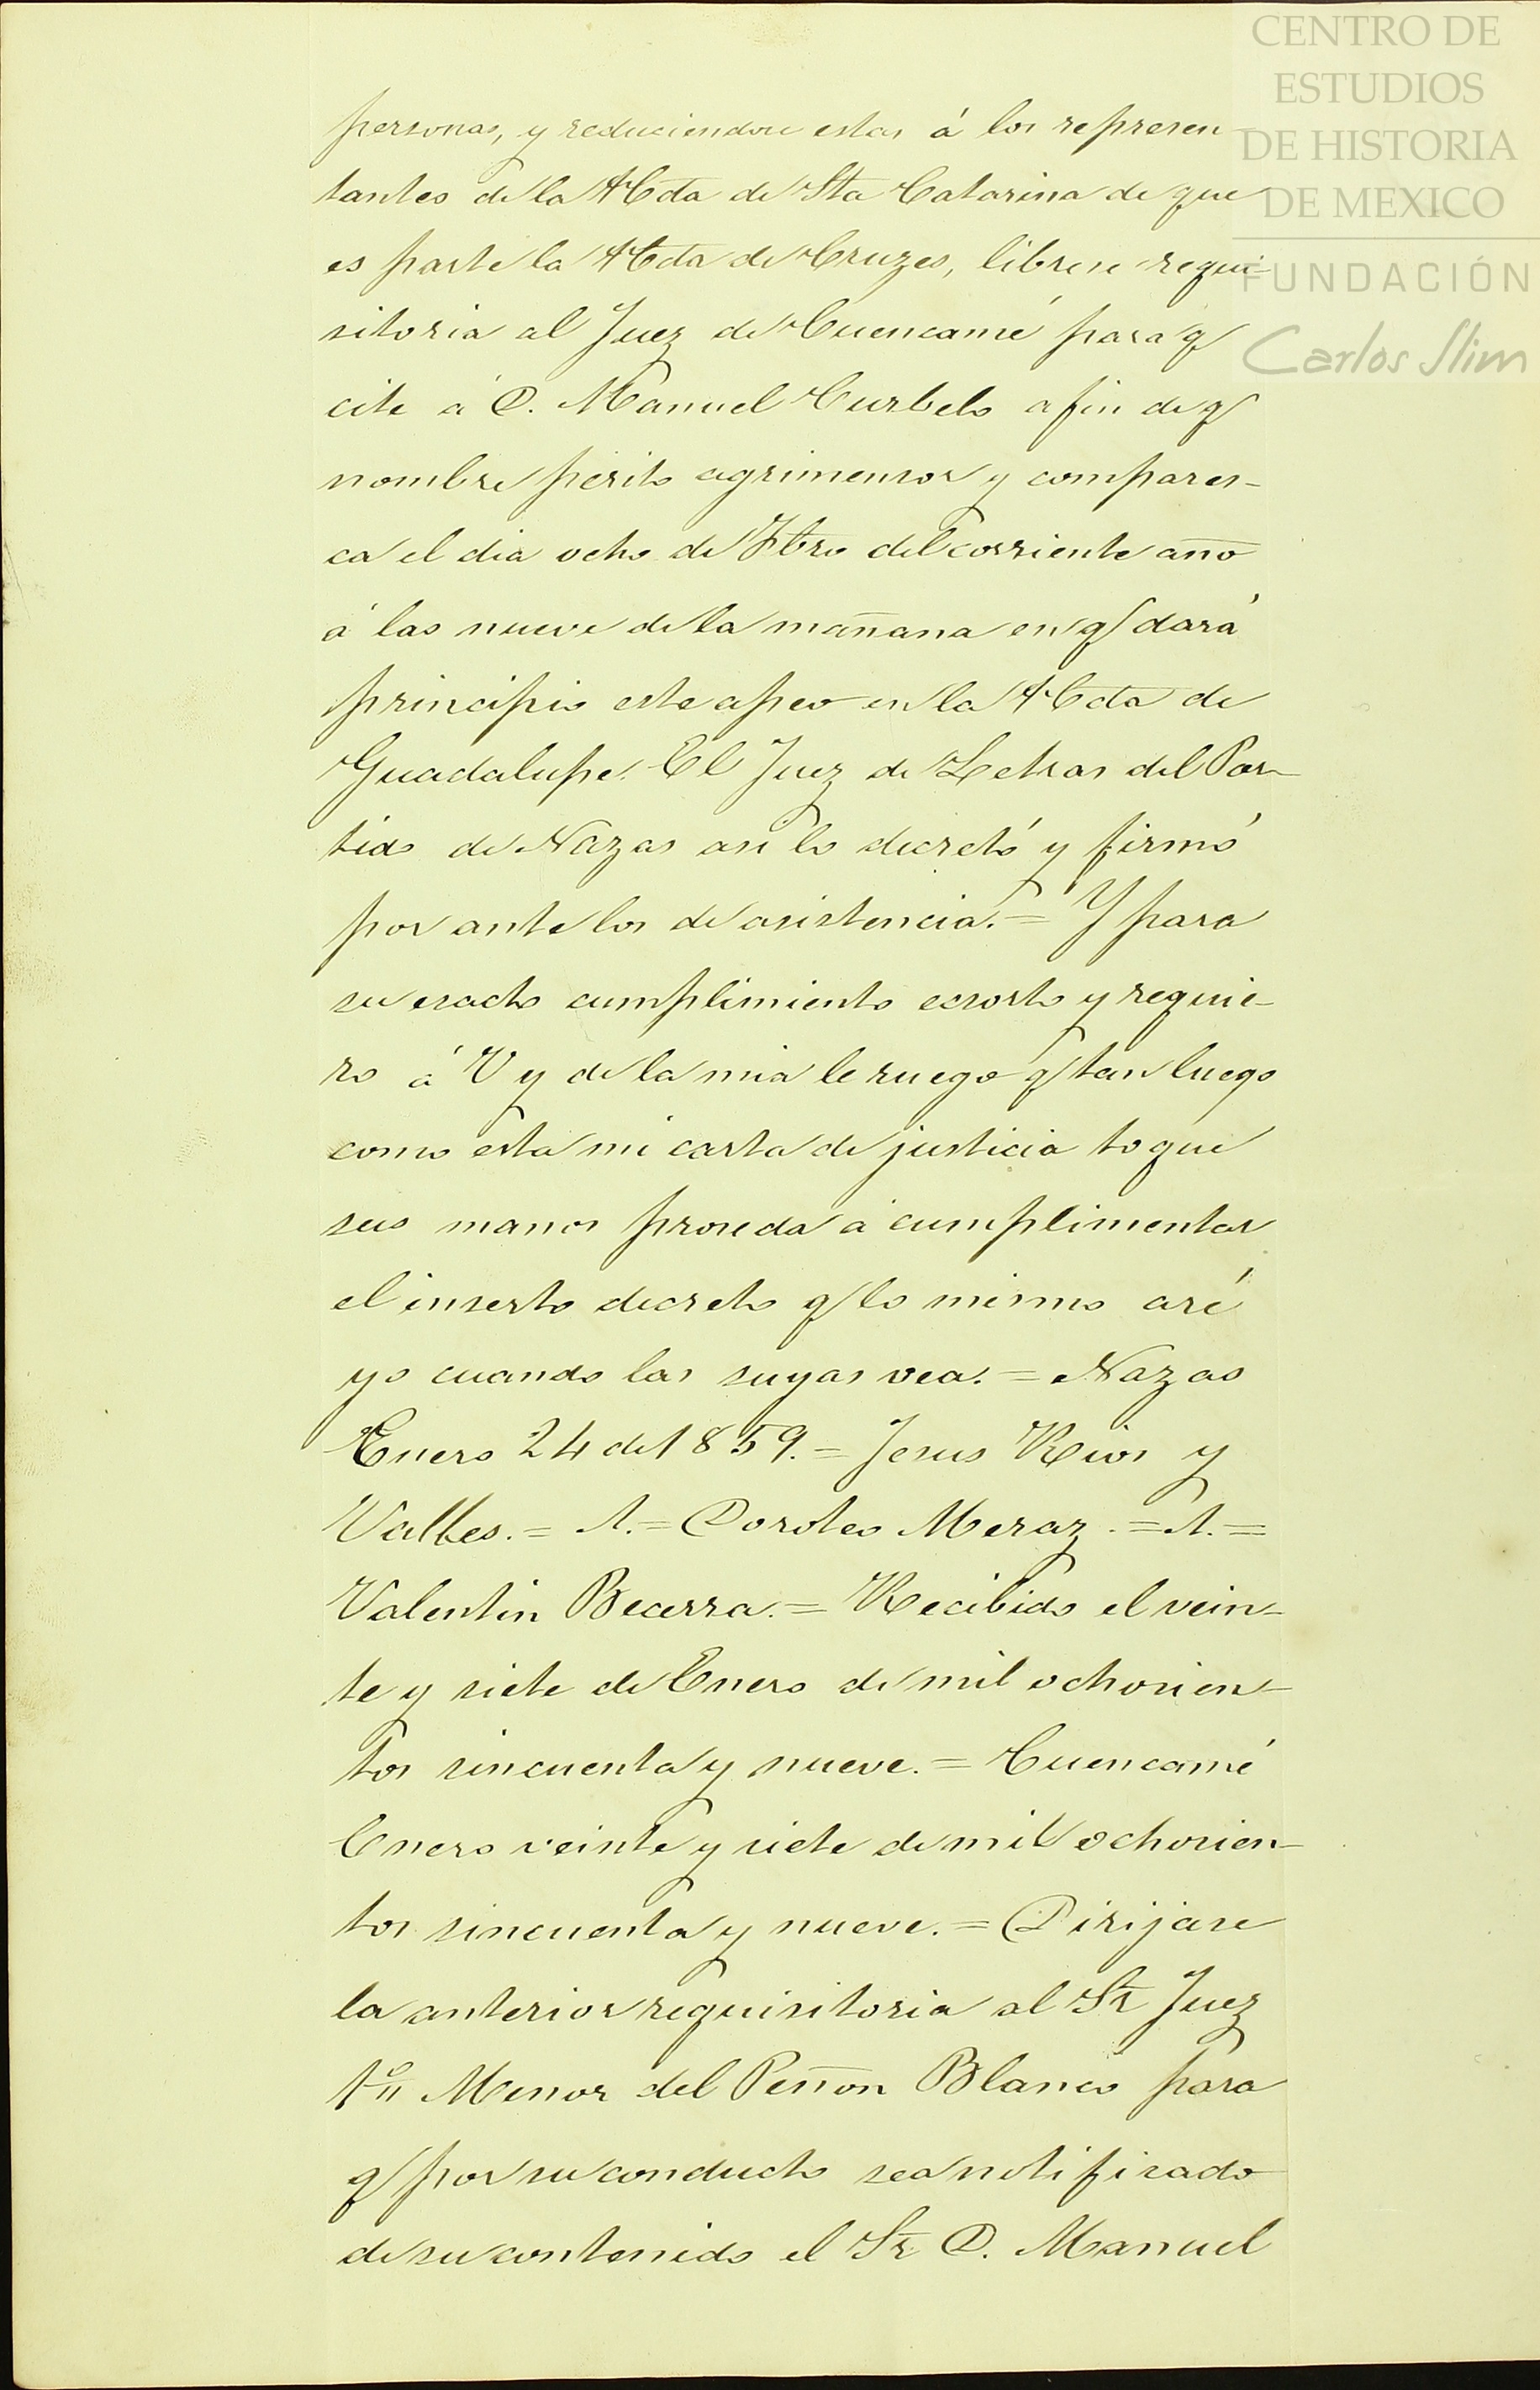 CENTRO DE
ESTUDIOS
DE HISTORIA
DE MEXICO
FUNDACIÓN
Carlos Slim
personas, y reduciendose estas á los represen-
tantes de la Hda de Sta Catarina de que
es parte la Hda de Cruzes, librese requi-
sitoria al Juez de Cuencamé para q
cite á D. Manuel Curbelo a fin de q
nombre perito agrimensor y compares-
ca el dia ocho de Fbro del corriente año
á las nueve de la mañana en q dará
principio este apeo en la Hda de
Guadalupe. El Juez de Letras del Par-
tido de Nazas asi lo decretó y firmó
por ante los de asistencia. = Y para
su esacto cumplimiento ecsorto y requie-
ro á V y de la mia le ruego q tan luego
como esta mi carta de justicia toque
sus manos proseda á cumplimentar
el inserto decreto q lo mismo aré
yo cuando las suyas vea. = Nazas
Enero 24 de 1859. = Jesus Rios y
Valles. = A. = Doroteo Meraz. = A. =
Valentin Becerra. = Recibido el vein-
te y siete de Enero de mil ochosien-
tos sincuenta y nueve. = Cuencamé
Enero veinte y siete de mil ochosien-
tos sincuenta y nueve. = Dirijase
la anterior requisitoria al Sr Juez
1º Menor del Peñon Blanco para
q por su conducto sea notifisado
de su contenido el Sr D. Manuel